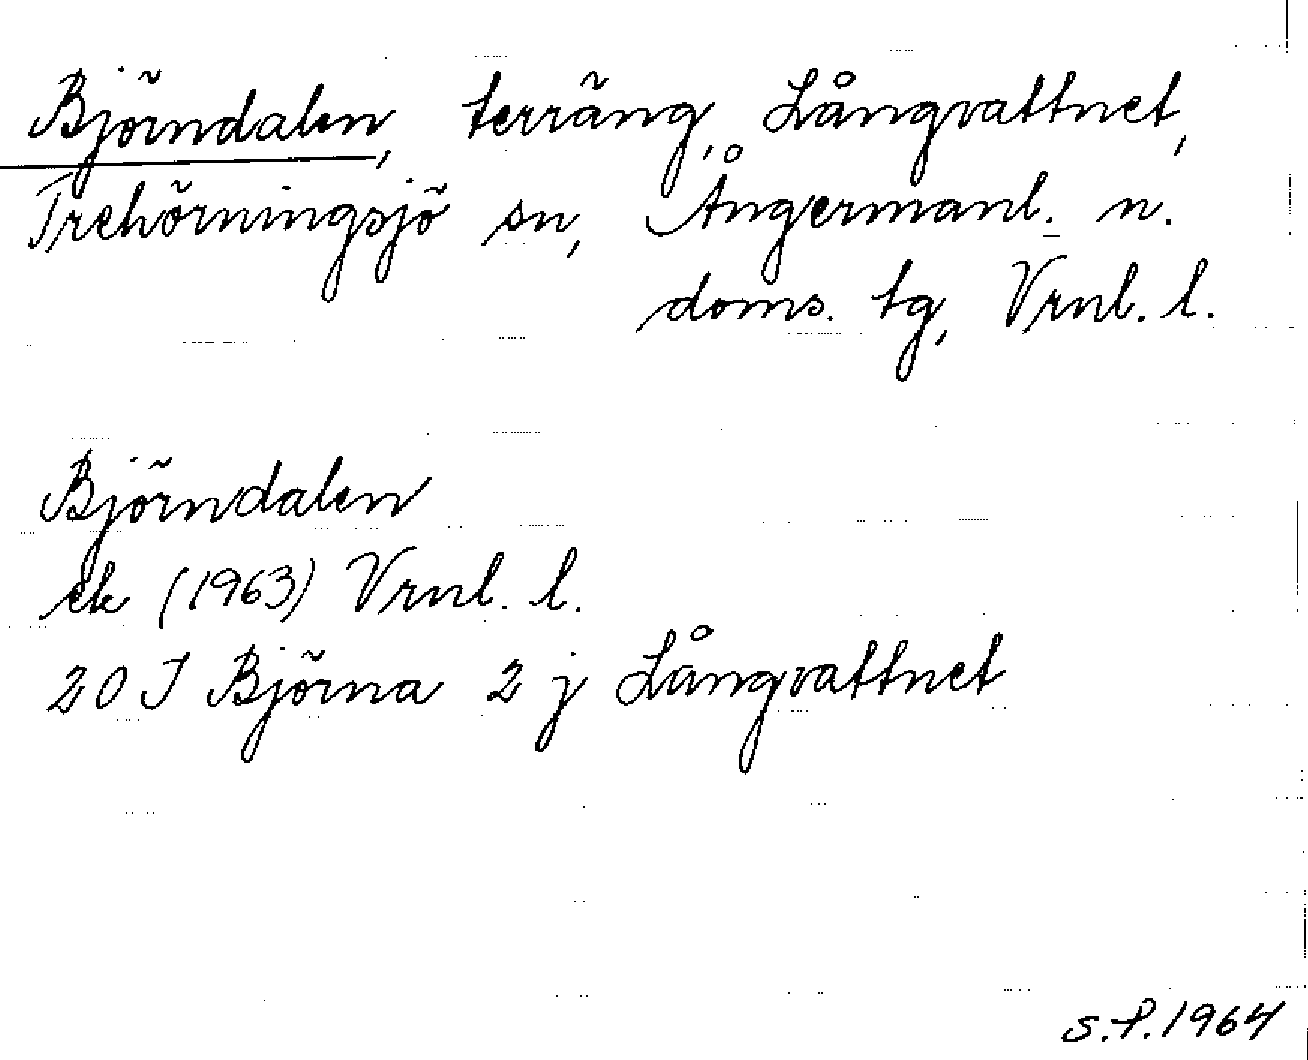 Björndalen, terräng, Långvattnet,
Trehörningsjö sn, Ångermanl. n.
doms. tg, Vrnl. l.
Björndalen
ek (1963) Vrnl. l.
20 J Björna 2 j Långvattnet
S.P. 1964